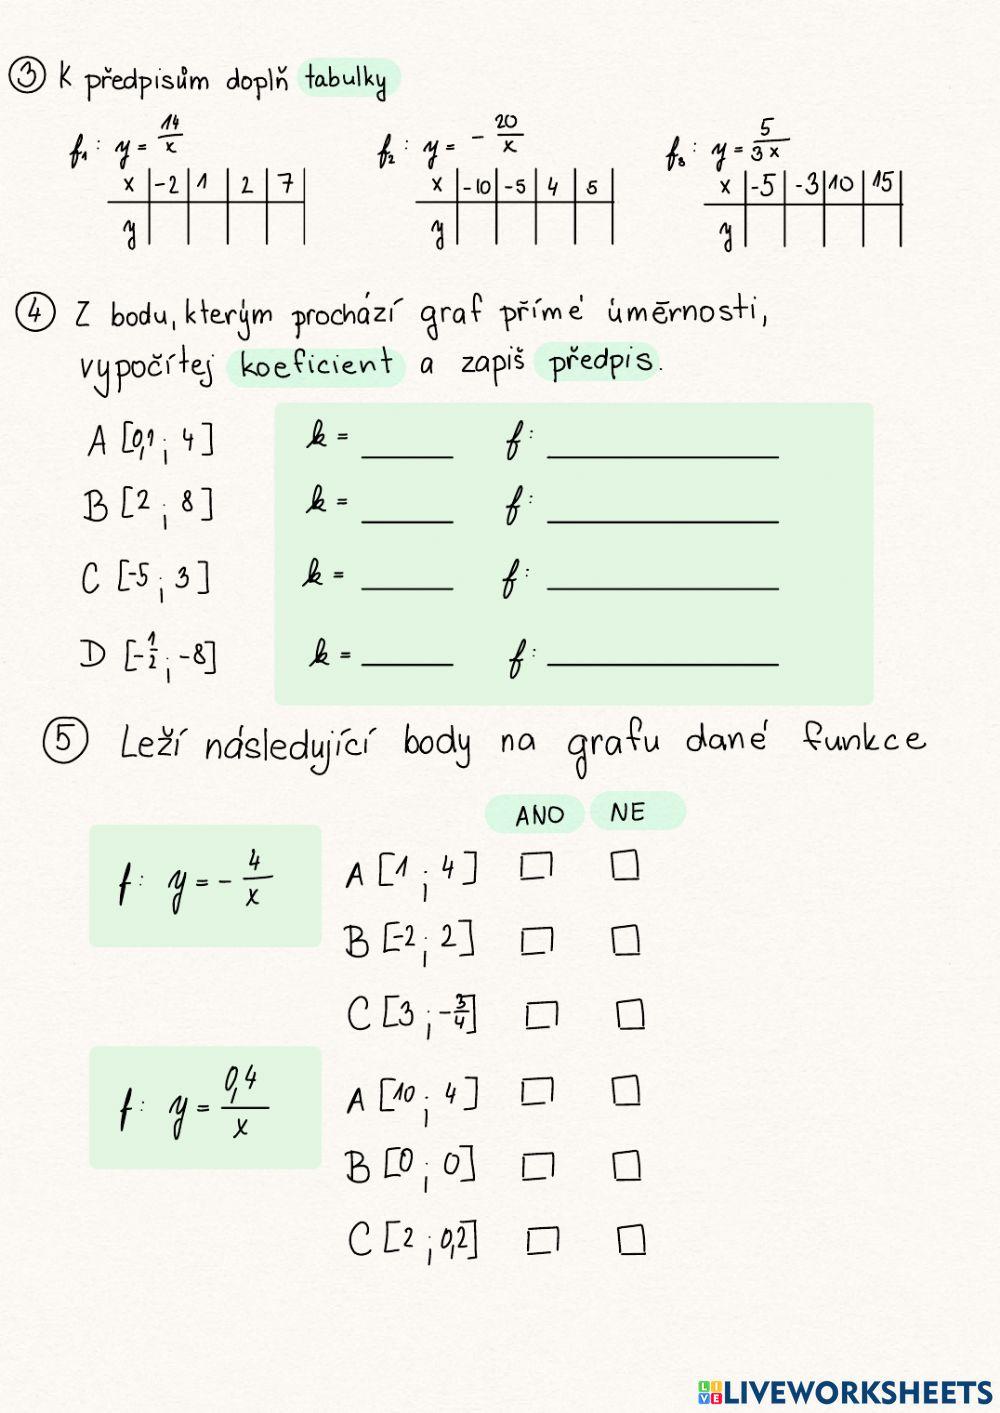 3 K předpisům doplň tabulky
f₁: y = 14/x
x -2 1 2 7
y
f₂: y = - 20/x
x -10 -5 4 5
y
f₃: y = 5/3x
x -5 -3 10 15
y
4 Z bodu, kterým prochází graf přímé úměrnosti,
vypočítej koeficient a zapiš předpis.
A [0,1 ; 4] k = ____ f: ____
B [2 ; 8] k = ____ f: ____
C [-5 ; 3] k = ____ f: ____
D [-1/2 ; -8] k = ____ f: ____
5 Leží následující body na grafu dané funkce
ANO NE
f: y = - 4/x
A [1 ; 4]
B [-2 ; 2]
C [3 ; -3/4]
f: y = 0,4/x
A [10 ; 4]
B [0 ; 0]
C [2 ; 0,2]
LIVE LIVEWORKSHEETS